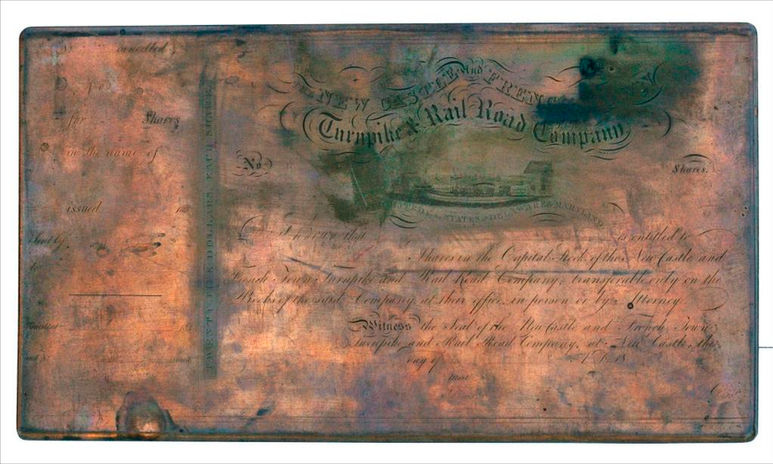 cancelled
No.
for Shares
in the name of
issued 18
NEW CASTLE And FRENCH
Turnpike & Rail Road Company
No.
Shares.
STATES of DELAWARE & MARYLAND
is entitled to
Shares in the Capital Stock of the New Castle and
French Town Turnpike and Rail Road Company, transferable only on the
Books of the said Company at their office, in person or by Attorney.
Witness the Seal of the New Castle and French Town
Turnpike and Rail Road Company, at New Castle, the
day of A.D. 18